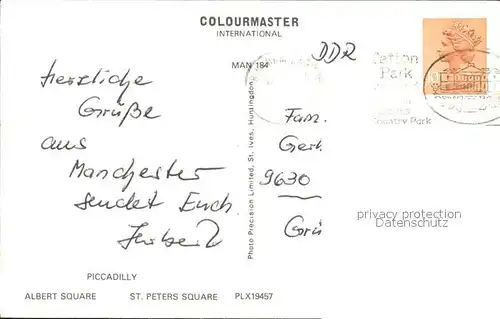 COLOURMASTER
INTERNATIONAL
MAN 184
DDR
Park
Country Park
Herzliche
Grüße
aus
Manchester
sendet Euch
Herbert
Fam.
Gerh
9630
Grü
Photo Precision Limited, St. Ives, Huntingdon
privacy protection
Datenschutz
PICCADILLY
ALBERT SQUARE ST. PETERS SQUARE PLX19457